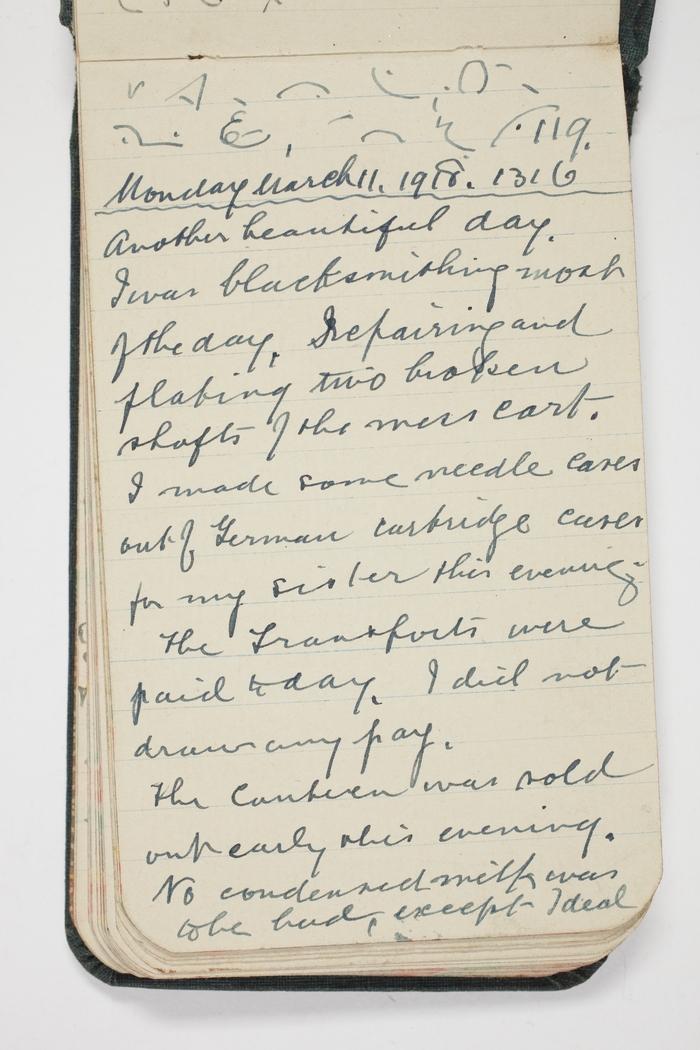 119.
Monday March 11. 1918. 1316
Another beautiful day.
I was blacksmithing most
of the day. Repairing and
plating two broken
shafts of the mess cart.
I made some needle cases
out of German cartridge cases
for my sister this evening.
The Transports were
paid today. I did not
draw any pay.
The Canteen was sold
out early this evening.
No condensed milk was
to be had, except Ideal